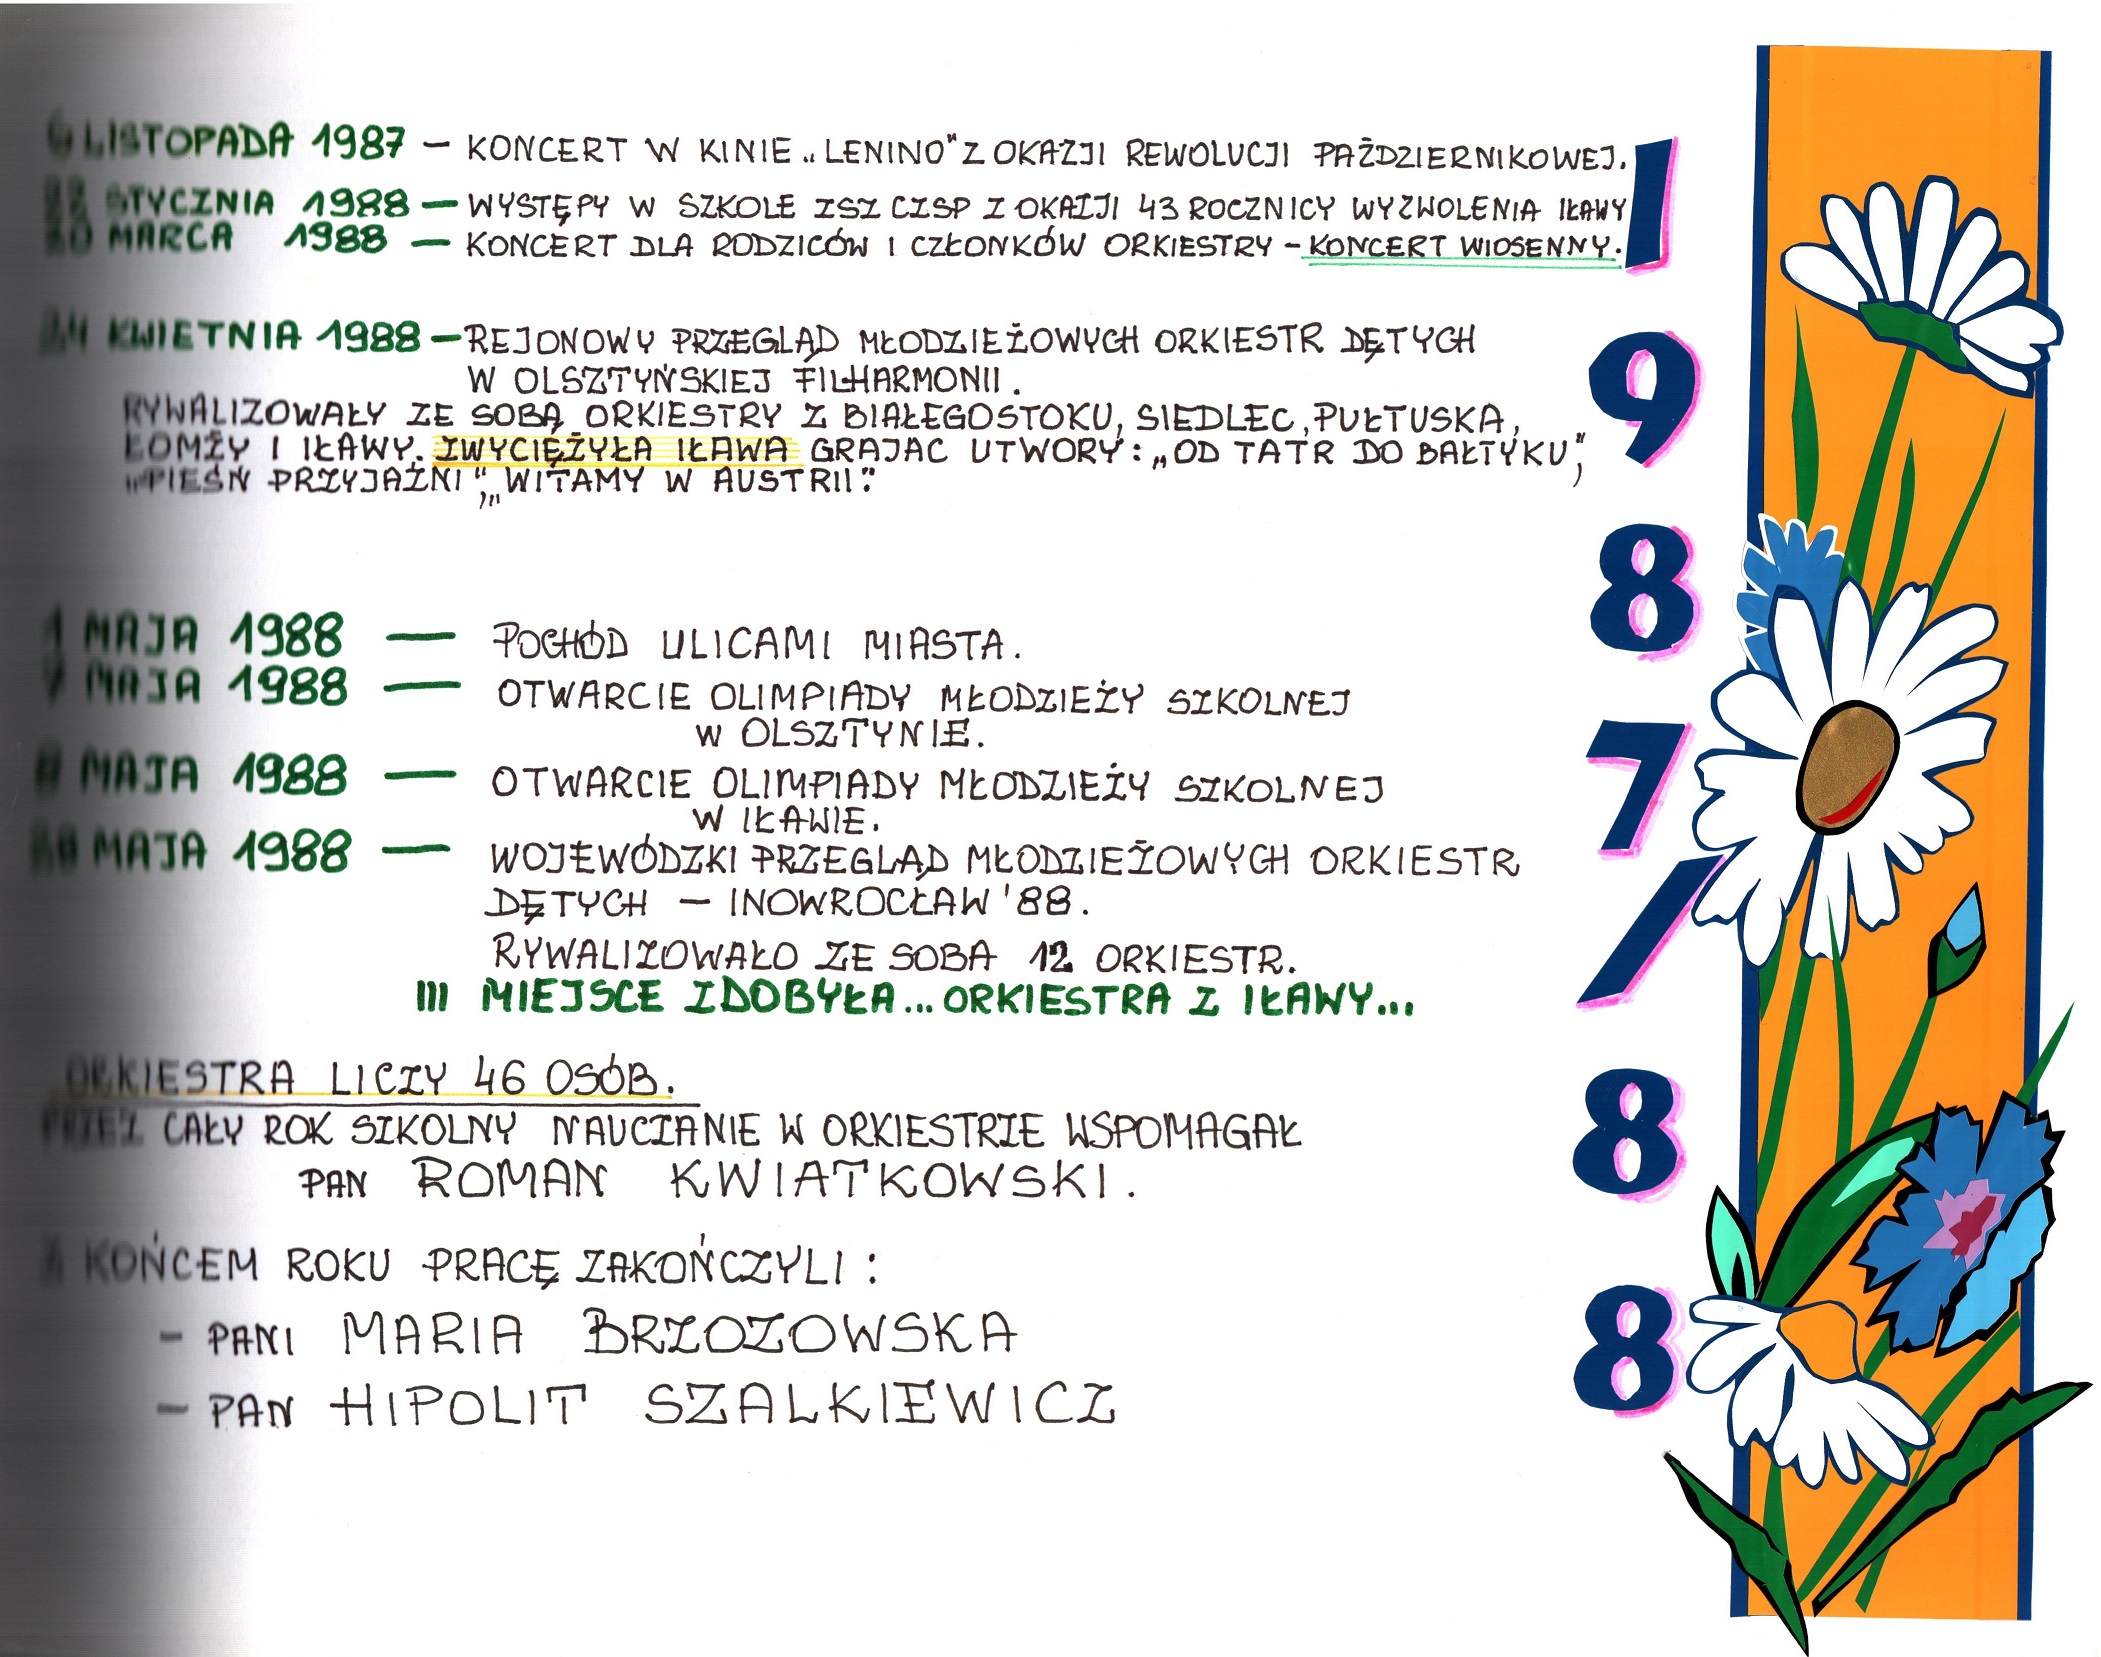 6 LISTOPADA 1987 – KONCERT W KINIE „LENINO” Z OKAZJI REWOLUCJI PAŹDZIERNIKOWEJ.
22 STYCZNIA 1988 – WYSTĘPY W SZKOLE ZSZ CZSP Z OKAZJI 43 ROCZNICY WYZWOLENIA IŁAWY
MARCA 1988 – KONCERT DLA RODZICÓW I CZŁONKÓW ORKIESTRY – KONCERT WIOSENNY.
KWIETNIA 1988 – REJONOWY PRZEGLĄD MŁODZIEŻOWYCH ORKIESTR DĘTYCH
W OLSZTYŃSKIEJ FILHARMONII.
RYWALIZOWAŁY ZE SOBĄ ORKIESTRY Z BIAŁEGOSTOKU, SIEDLEC, PUŁTUSKA,
ŁOMŻY I IŁAWY. ZWYCIĘŻYŁA IŁAWA GRAJAC UTWORY: „OD TATR DO BAŁTYKU”,
„PIEŚŃ PRZYJAŹNI”, „WITAMY W AUSTRII”.
1 MAJA 1988 — POCHÓD ULICAMI MIASTA.
MAJA 1988 — OTWARCIE OLIMPIADY MŁODZIEŻY SZKOLNEJ
W OLSZTYNIE.
MAJA 1988 — OTWARCIE OLIMPIADY MŁODZIEŻY SZKOLNEJ
W IŁAWIE.
MAJA 1988 — WOJEWÓDZKI PRZEGLĄD MŁODZIEŻOWYCH ORKIESTR
DĘTYCH – INOWROCŁAW '88.
RYWALIZOWAŁO ZE SOBA 12 ORKIESTR.
III MIEJSCE ZDOBYŁA... ORKIESTRA Z IŁAWY...
ORKIESTRA LICZY 46 OSÓB.
PRZEZ CAŁY ROK SZKOLNY NAUCZANIE W ORKIESTRZE WSPOMAGAŁ
PAN ROMAN KWIATKOWSKI.
Z KOŃCEM ROKU PRACĘ ZAKOŃCZYLI:
– PANI MARIA BRZOZOWSKA
– PAN HIPOLIT SZALKIEWICZ
1987/88